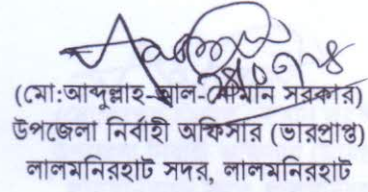 (মো:আব্দুল্লাহ-আল-নোমান সরকার)
উপজেলা নির্বাহী অফিসার (ভারপ্রাপ্ত)
লালমনিরহাট সদর, লালমনিরহাট